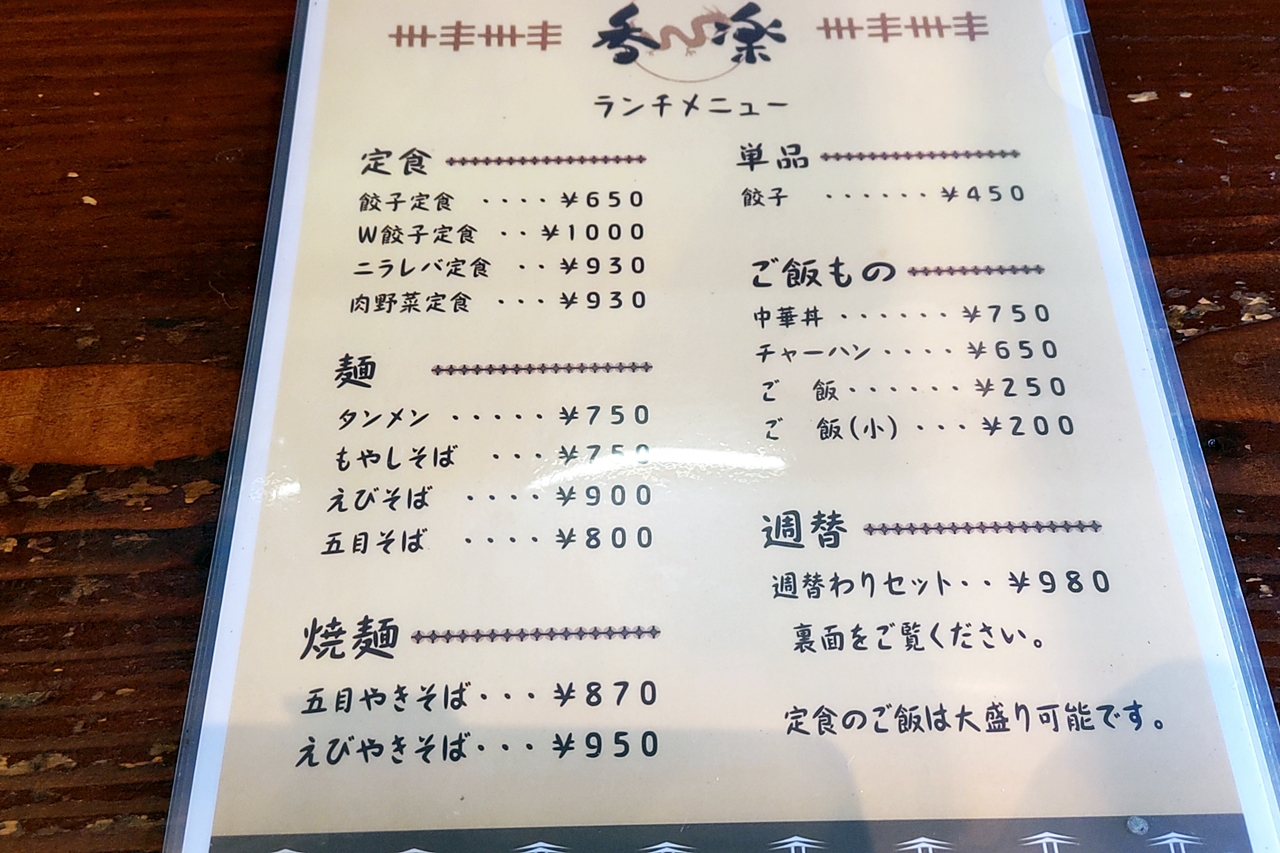 香楽
ランチメニュー
定食
餃子定食 ････ ¥650
W餃子定食 ･･ ¥1000
ニラレバ定食 ･･ ¥930
肉野菜定食 ･･･ ¥930
麺
タンメン ･････ ¥750
もやしそば ･･･ ¥750
えびそば ････ ¥900
五目そば ････ ¥800
焼麺
五目やきそば･･･ ¥870
えびやきそば･･･ ¥950
単品
餃子 ･･････ ¥450
ご飯もの
中華丼 ･･････ ¥750
チャーハン ････ ¥650
ご 飯 ･･････ ¥250
ご 飯(小) ･･･ ¥200
週替
週替わりセット･･ ¥980
裏面をご覧ください。
定食のご飯は大盛り可能です。